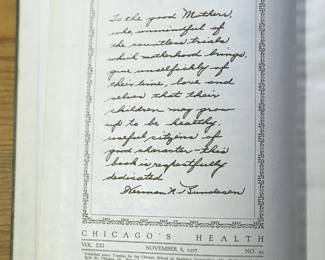 To the good Mothers,
who, unmindful of
the countless trials
which motherhood brings,
give unselfishly of
their time, love and
selves that their
children may grow
up to be healthy,
useful citizens of
good character—this
book is respectfully
dedicated
Herman N. Bundesen
CHICAGO'S HEALTH
VOL. XXI NOVEMBER 8, 1927 NO.
Published every Tuesday by the Chicago School of